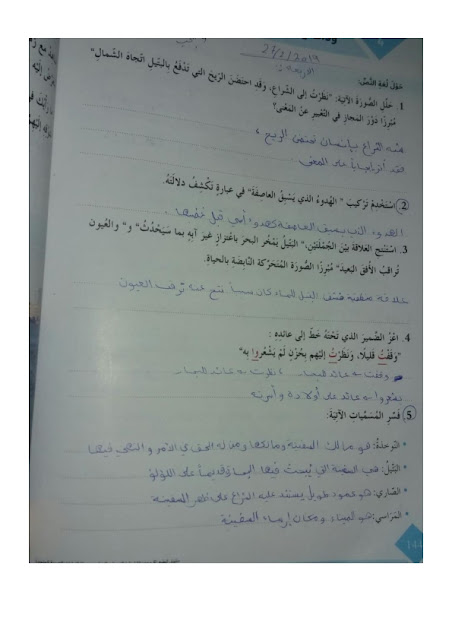 27/2/2019
الأربعاء
حَوْلَ لُغَةِ النَّصِّ:
1. حَلِّلِ الصُّورَةَ الآتِيَةَ: "نَظَرْتُ إلى الشِّراعِ، وَقَدِ احتَضَنَ الرِّيحَ التي تَدْفَعُ بِالبَتِيلِ اتِّجاهَ الشَّمالِ"
مُبْرِزًا دَوْرَ المَجازِ في التَّعْبيرِ عَنِ المَعْنى؟
شبه الشراع بإنسان يحتضن الريح ،
فقد أثر إيجابياً على المعنى
2 اسْتَخْدِمْ تَرْكيبَ " الهُدوءُ الذي يَسْبِقُ العاصِفَةَ" في عِبارَةٍ تَكْشِفُ دَلالَتَهُ.
الهدوء الذي يسبق العاصفة كهدوء أمي قبل غضبها
3. اسْتَنْتِجِ العَلاقَةَ بَيْنَ الجُمْلَتَيْنِ:" البَتِيلُ يَمْخُرُ البَحرَ باعْتِزازٍ غيرَ آبِهٍ بما سَيَحْدُثُ" و" والعُيون
تُراقِبُ الأُفُقَ البَعيدَ" مُبْرِزًا الصُّورَةَ المُتَحَرِّكَةَ النَّابِضَةَ بالحياةِ.
علاقة منطقية فشق البتيل الماء كان سبباً نتج عنه ترقب العيون
4. اعْزُ الضَّميرَ الذي تَحْتَهُ خَطٌّ إلى عائِدِهِ :
"وَقَفْتُ قَليلًا، وَنَظَرْتُ إليْهِم بحُزْنٍ لَمْ يَشْعُروا بِهِ"
وقفت ت عائد البحار ، نظرت ت عائد البحار
يشعروا و عائد على أولاده وأسرته
5 فَسِّرِ المُسَمَّياتِ الآتِيَةَ:
• النُّوخَذَةُ: هو مالك السفينة ومالكها وهو له الحق في الأمر والنهي فيها
• البَتِيلُ: هي السفينة التي يبحث فيها البحارة قديماً على اللؤلؤ
• الصَّاري: هو عمود طويل يستند عليه الشراع على ظهر السفينة
• المَراسي: هو الميناء ومكان إرساء السفينة
144